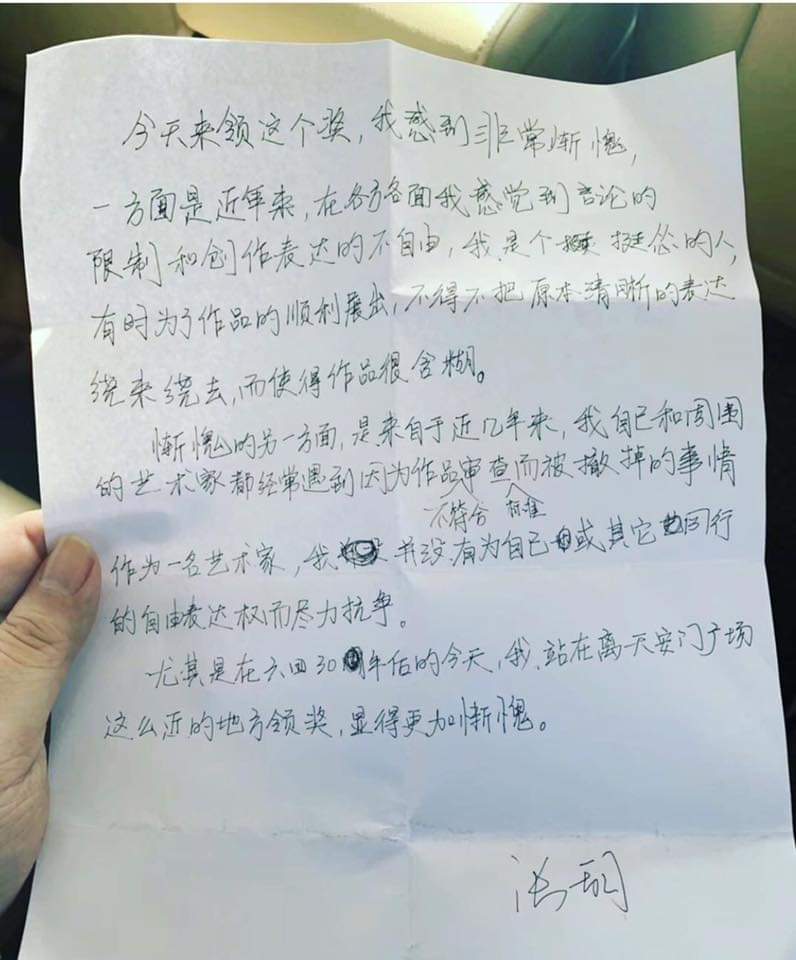 今天来领这个奖，我感到非常惭愧，
一方面是近年来，在各方各面我感觉到言论的
限制和创作表达的不自由，我是个挺怂的人，
有时为了作品的顺利展出，不得不把原本清晰的表达
绕来绕去，而使得作品很含糊。
惭愧的另一方面，是来自于近几年来，我自己和周围
的艺术家都经常遇到因为作品审查而被撤掉的事情
不符合 标准
作为一名艺术家，我并没有为自己或其它同行
的自由表达权而尽力抗争。
尤其是在六四30年后的今天，我站在离天安门广场
这么近的地方领奖，显得更加惭愧。